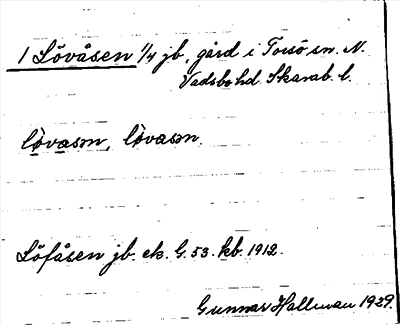 1 Lövåsen 1/4 jb, gård i Torsö sn. N.
Vadsbo hd. Skarab. l.
lövasən, lövasən.
Löfåsen jb. ek. G. 53. kb. 1912.
Gunnar Hallman 1929.